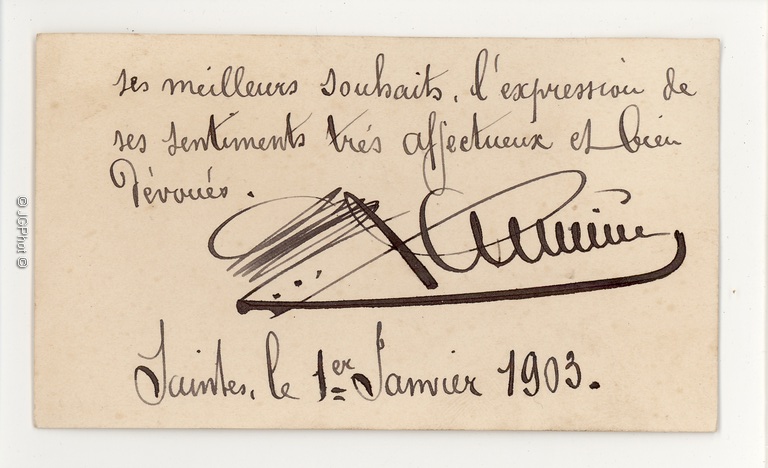 ses meilleurs souhaits, l'expression de
ses sentiments très affectueux et bien
Dévoués.
Saintes, le 1er Janvier 1903.
© JGPhot ©